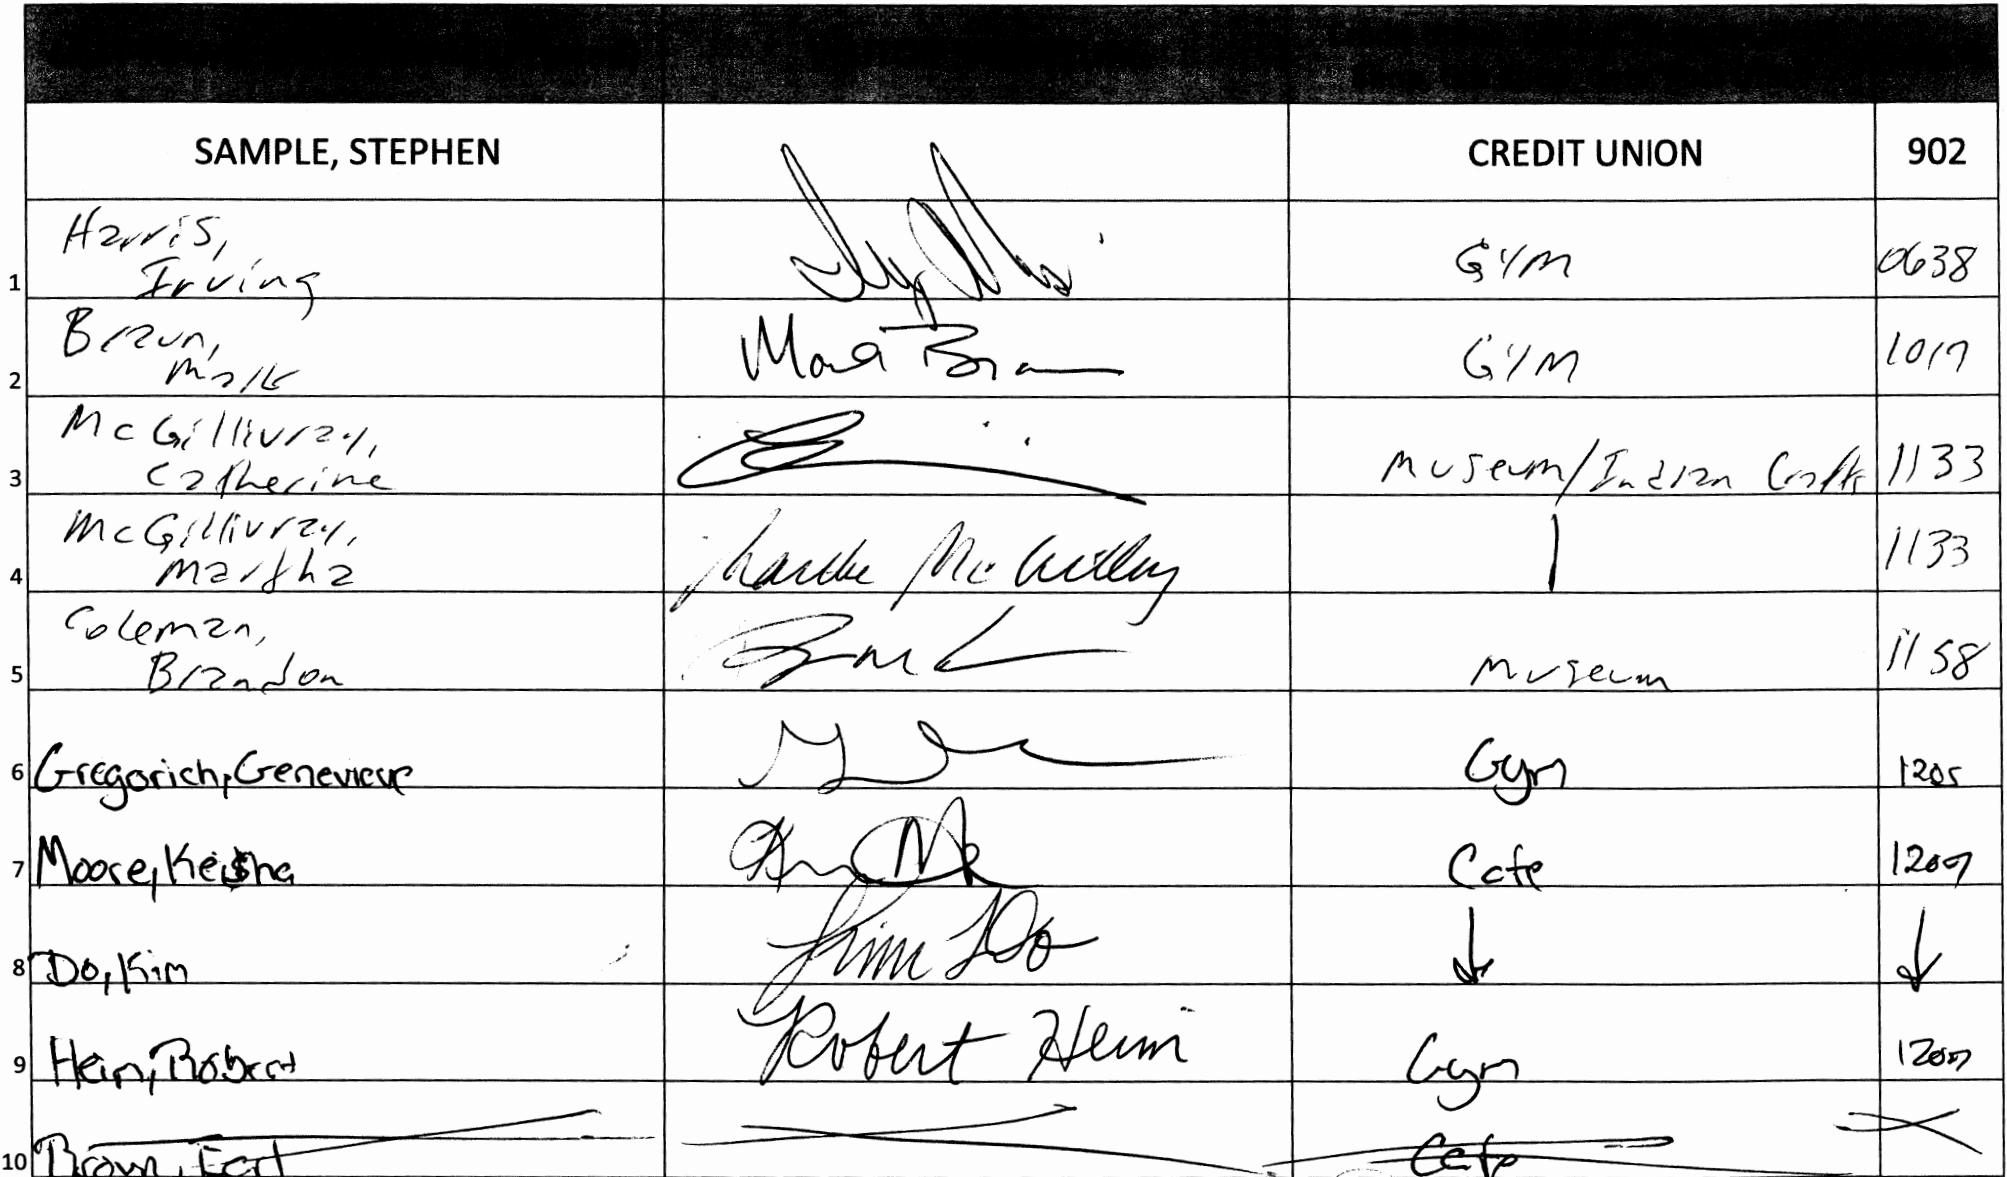 SAMPLE, STEPHEN CREDIT UNION 902
Harris,
Irving GYM 0638
1
Braun, Mark Braun
Mark GYM 1017
2
McGillivray,
Catherine Museum/Indian Crafts 1133
3
McGillivray,
Martha 1133
4
Coleman,
Brandon Museum 1158
5
6 Gregorich, Genevieve Gym 1205
7 Moore, Keisha Cafe 1207
8 Do, Kim Kim Do
9 Heim, Robert Robert Heim Gym 1207
10 Brown, Earl Cafe